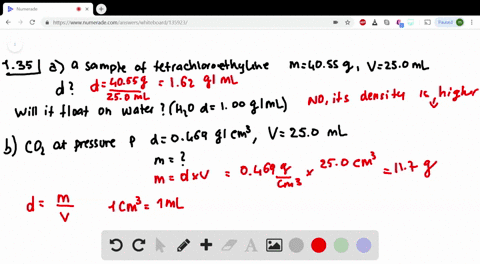 Numerade
https://www.numerade.com/answers/whiteboard/135923/
Paused
1.35 a) a sample of tetrachloroethylene m=40.55 g, V=25.0 mL
d? d=40.55 g/25.0 mL = 1.62 g/mL
Will it float on water? (H₂O d=1.00 g/mL) NO, its density is higher
b) CO₂ at pressure P d=0.469 g/cm³, V=25.0 mL
m=?
m=d×V = 0.469 g/cm³ × 25.0 cm³ = 11.7 g
d= m/V 1cm³=1mL